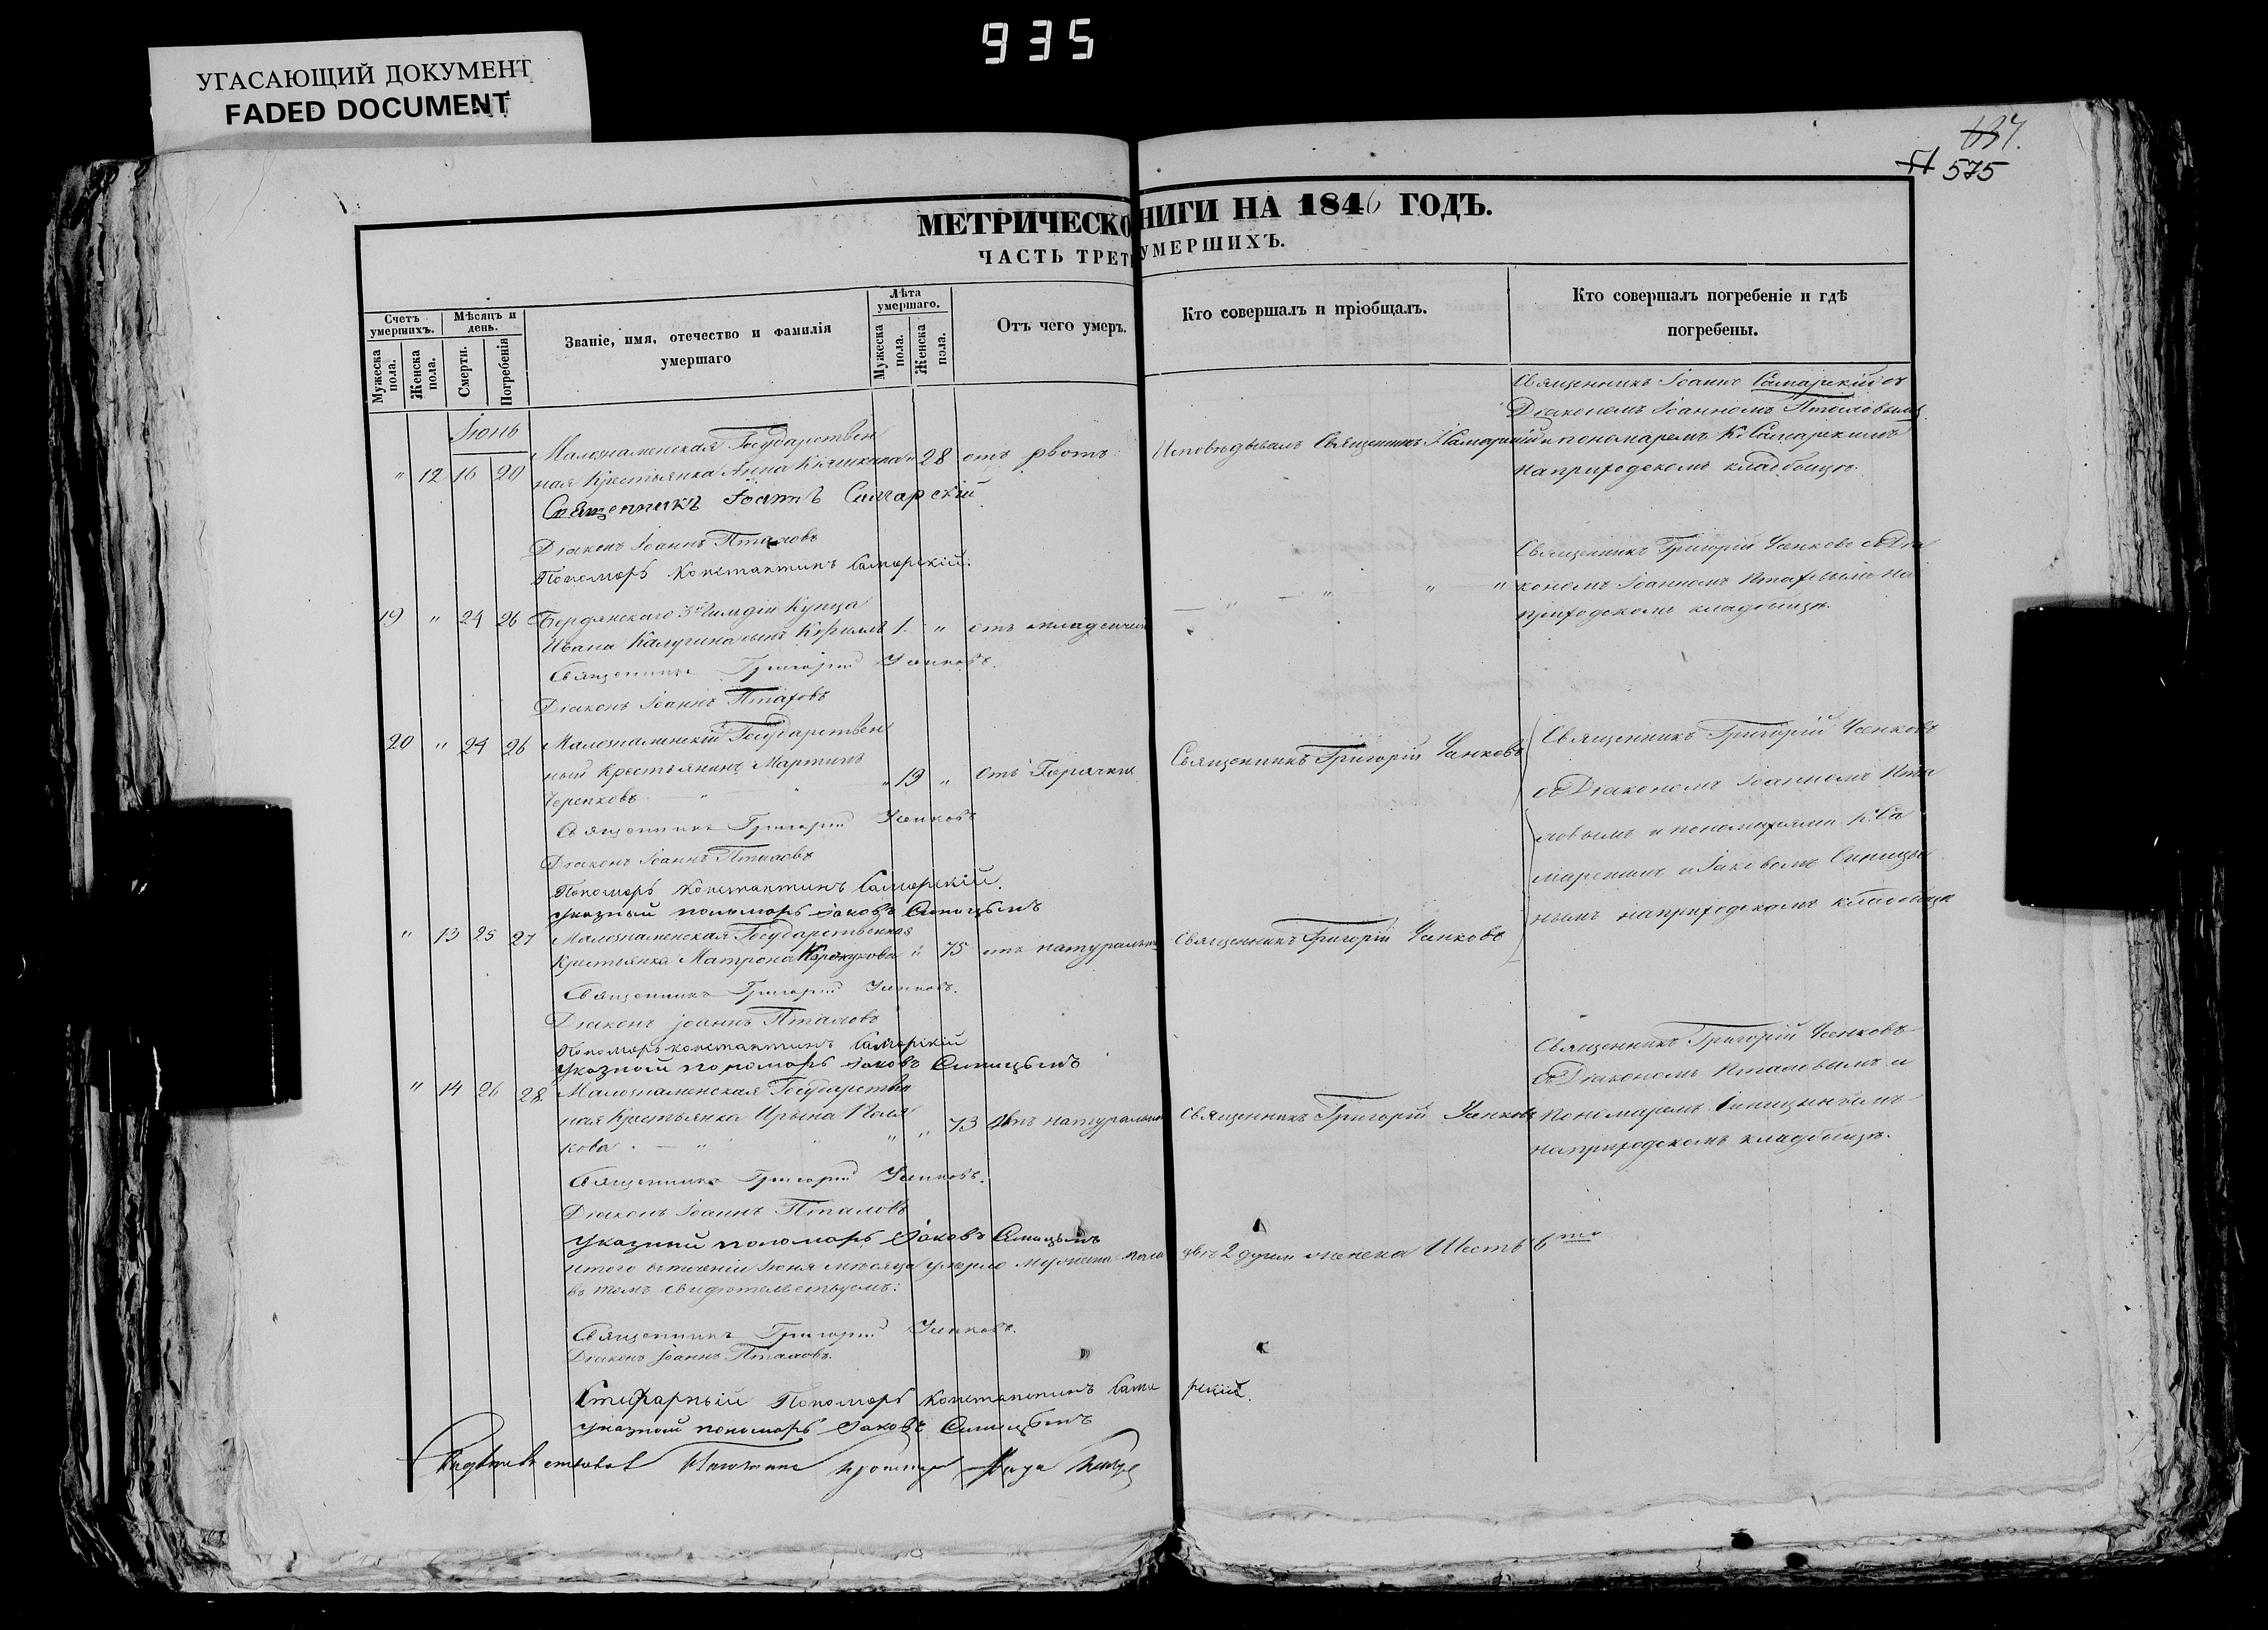 935
УГАСАЮЩИЙ ДОКУМЕНТ
FADED DOCUMENT
575
МЕТРИЧЕСКО НИГИ НА 1846 ГОДЪ.
ЧАСТЬ ТРЕТ УМЕРШИХЪ.
Счетъ умершихъ.
Мужеска пола.
Женска пола.
Мѣсяцъ и день.
Смерти.
Погребенія
Званіе, имя, отечество и фамилія умершаго
Лѣта умершаго.
Мужеска пола.
Женска пола.
Отъ чего умеръ.
Кто совершалъ и пріобщалъ.
Кто совершалъ погребеніе и гдѣ погребены.
Іюнь
" 12 16 20
Малознаменская Государствен
ная Крестьянка Анна
" 28 отъ рвотъ
Исповѣдывалъ Священникъ І. Самарскій
Священникъ Іоаннъ Самарскій съ
Діакономъ Іоанномъ Пталовымъ
и пономаремъ К. Самарскимъ
на приходскомъ кладбищѣ.
Священникъ Іоаннъ Самарскій
Діаконъ Іоаннъ Пталовъ
Пономарь Константинъ Самарскій.
19 " 24 26
Бердянскаго 3й Гильдіи Купца
Ивана Калугина сынъ Кирилъ
1. " отъ младенчес
" " " "
Священникъ Григорій УSenковъ съ Діа
кономъ Іоанномъ Пталовымъ на
приходскомъ кладбищѣ.
Священникъ Григорій
Діаконъ Іоаннъ Пталовъ
20 " 24 26
Малознаменскій Государствен
ный Крестьянинъ Мартинъ
Черепковъ
19 " отъ Горячки
Священникъ Григорій
Священникъ Григорій
съ Діакономъ Іоанномъ Пта
ловымъ и пономарями К. Са
марскимъ и Іаковомъ Синицы
нымъ на приходскомъ кладбищѣ
Священникъ Григорій
Діаконъ Іоаннъ Пталовъ
Пономарь Константинъ Самарскій.
Указный пономарь Іаковъ Синицынъ
" 13 25 27
Малознаменская Государственная
Крестьянка Матрона
" 75 отъ натуральн
Священникъ Григорій
Священникъ Григорій
Діаконъ Іоаннъ Пталовъ
Пономарь Константинъ Самарскій
Указный пономарь Іаковъ Синицынъ
" 14 26 28
Малознаменская Государствен
ная Крестьянка Ирина Поля
кова
" 73 отъ натуральн
Священникъ Григорій
Священникъ Григорій
съ Діакономъ Пталовымъ и
Пономаремъ Синицынымъ
на приходскомъ кладбищѣ.
Священникъ Григорій
Діаконъ Іоаннъ Пталовъ
Указный пономарь Іаковъ Синицынъ
итого въ теченіи Іюня мѣсяца умерло мужеска пола двѣ 2 души женска Шесть 6
въ томъ свидѣтельствуемъ:
Священникъ Григорій
Діаконъ Іоаннъ Пталовъ.
Стихарный Пономарь Константинъ Сама рскій.
Указный пономарь Іаковъ Синицынъ